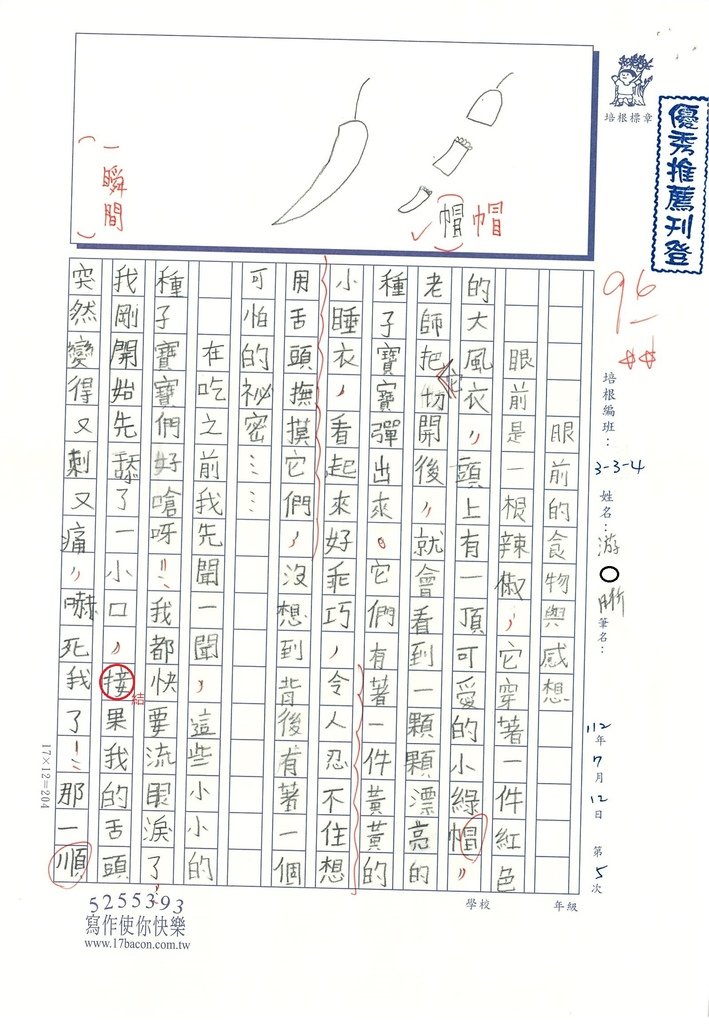 優秀推薦刊登
培根標章
96
培根編班：
3-3-4
姓名：游〇晰
筆名：
112年7月12日
第5次
(一瞬間)
(帽)帽
眼前的食物與感想
眼前是一根辣椒，它穿著一件紅色
的大風衣，頭上有一頂可愛的小綠帽。
老師把它切開後，就會看到一顆顆漂亮的
種子寶寶彈出來。它們有著一件黃黃的
小睡衣，看起來好乖巧，令人忍不住想
用舌頭撫摸它們，沒想到背後有著一個
可怕的祕密……
在吃之前我先聞一聞，這些小小的
種子寶寶們好嗆呀！我都快要流眼淚了，
我剛開始先舔了一小口，接果我的舌頭
結
突然變得又刺又痛，嚇死我了！那一順
17×12=204
學校
年級
5255393
寫作使你快樂
www.17bacon.com.tw